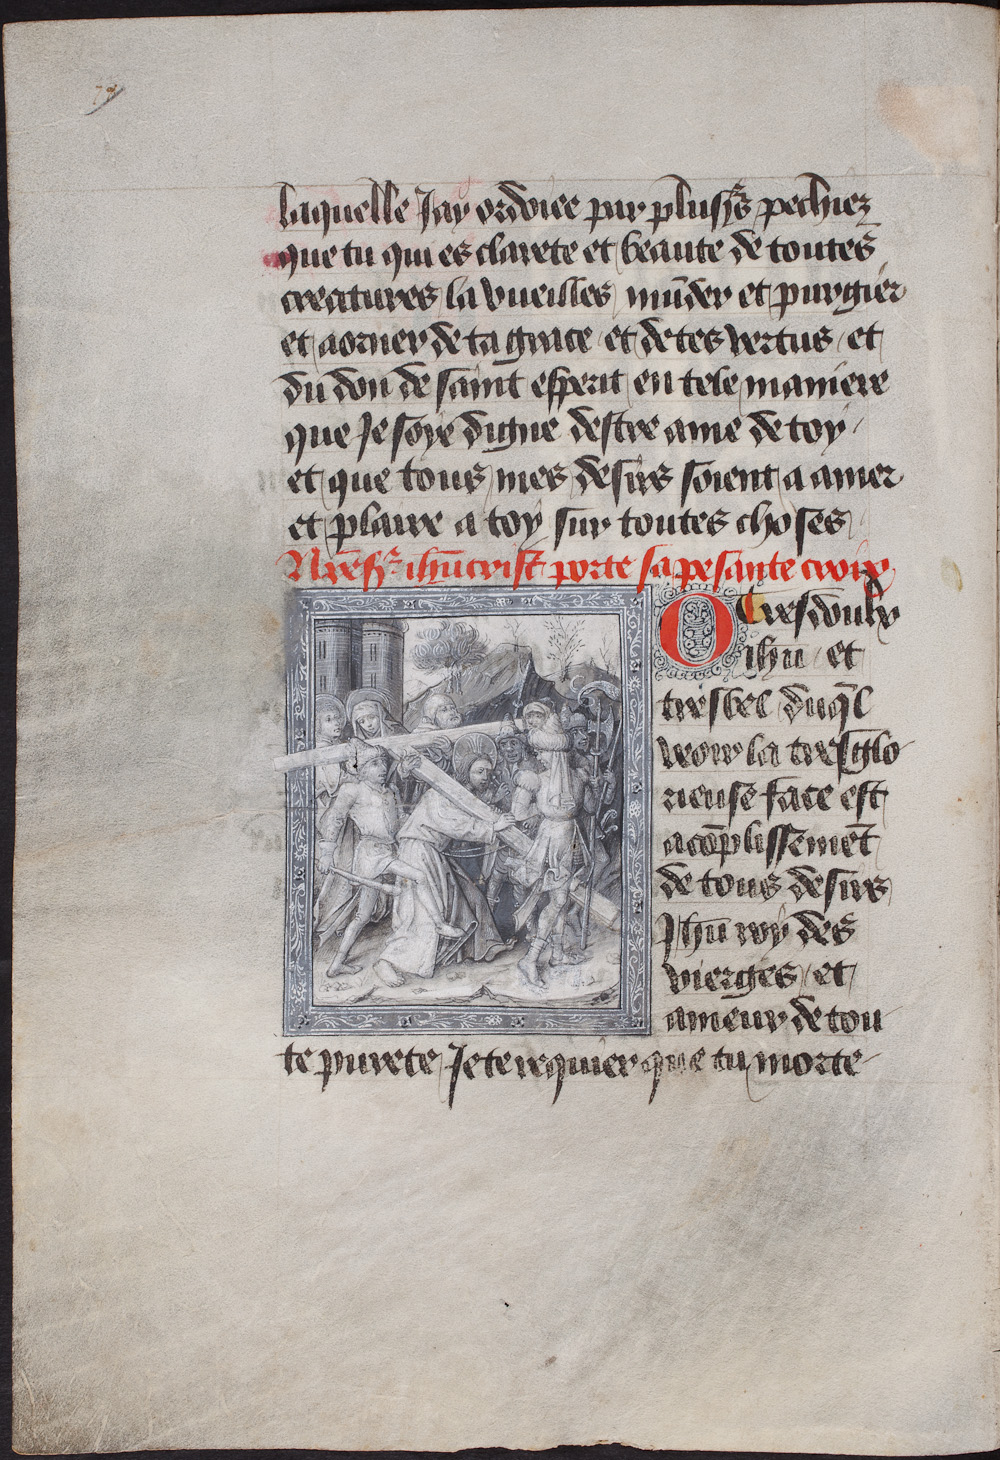 laquelle Jay ordoiee par plusrs̄ pechiez
que tu qui es clarete et beaute de toutes
creatures la vueilles mūder et purgier
et aorner de ta grace et de tes vertus et
du don de saint esperit en tele maniere
que Je soye digne destre ame de toy
et que tous mes desirs soient a amer
et plaire a toy sur toutes choses
ihūcrist porte sa pesante croix
O Tresdoulx
ihū et
tresbel duql̄
veoir la tresglo
rieuse face est
acōplissemēt
de tous desirs
Jhū roy des
vierges et
ameur de tou
te purete Je te requier que tu morte